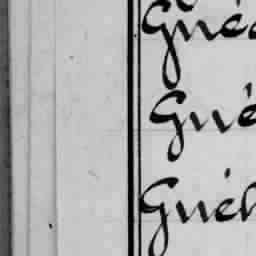 Gué
Gué
Guéh